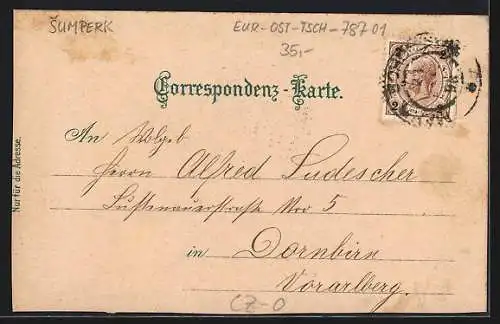 ŠUMPERK
EUR-OST-TSCH-787 01
35,-
Correspondenz-Karte.
Nur für die Adresse.
An Wolgeb
Herrn Alfred Ludescher
Lustenauerstraße Nro 5
in Dornbirn
Vorarlberg.
CZ-0